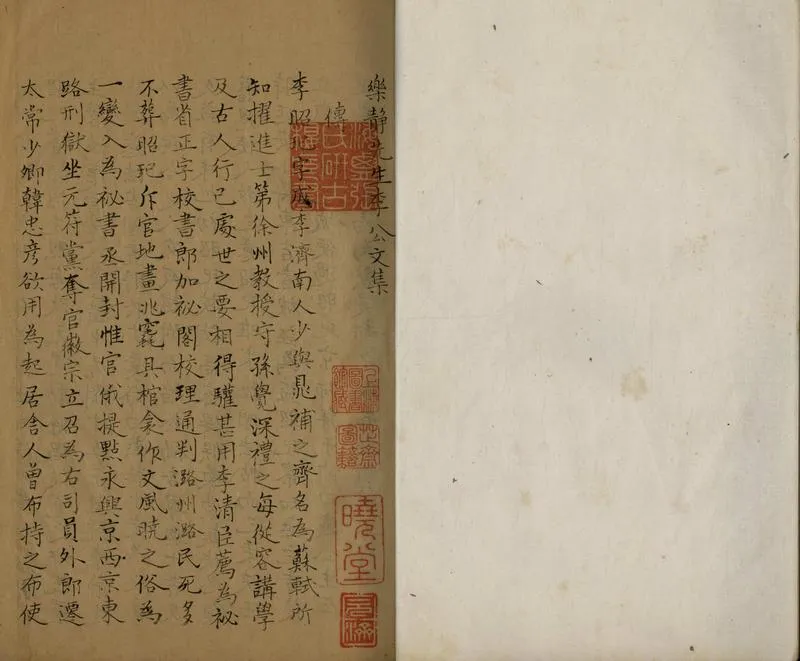 樂靜先生李公文集
傳
李昭玘字成季濟南人少與晁補之齊名為蘇軾所
知擢進士第徐州教授守孫覺深禮之每從容講學
及古人行己處世之要相得驩甚用李清臣薦為祕
書省正字校書郎加祕閣校理通判潞州潞民死多
不葬昭玘斥官地畫兆竁具棺衾作文風曉之俗為
一變入為祕書丞開封推官俄提點永興京西京東
路刑獄坐元符黨奪官徽宗立召為右司員外郎遷
太常少卿韓忠彥欲用為起居舍人曾布持之布使
曉堂